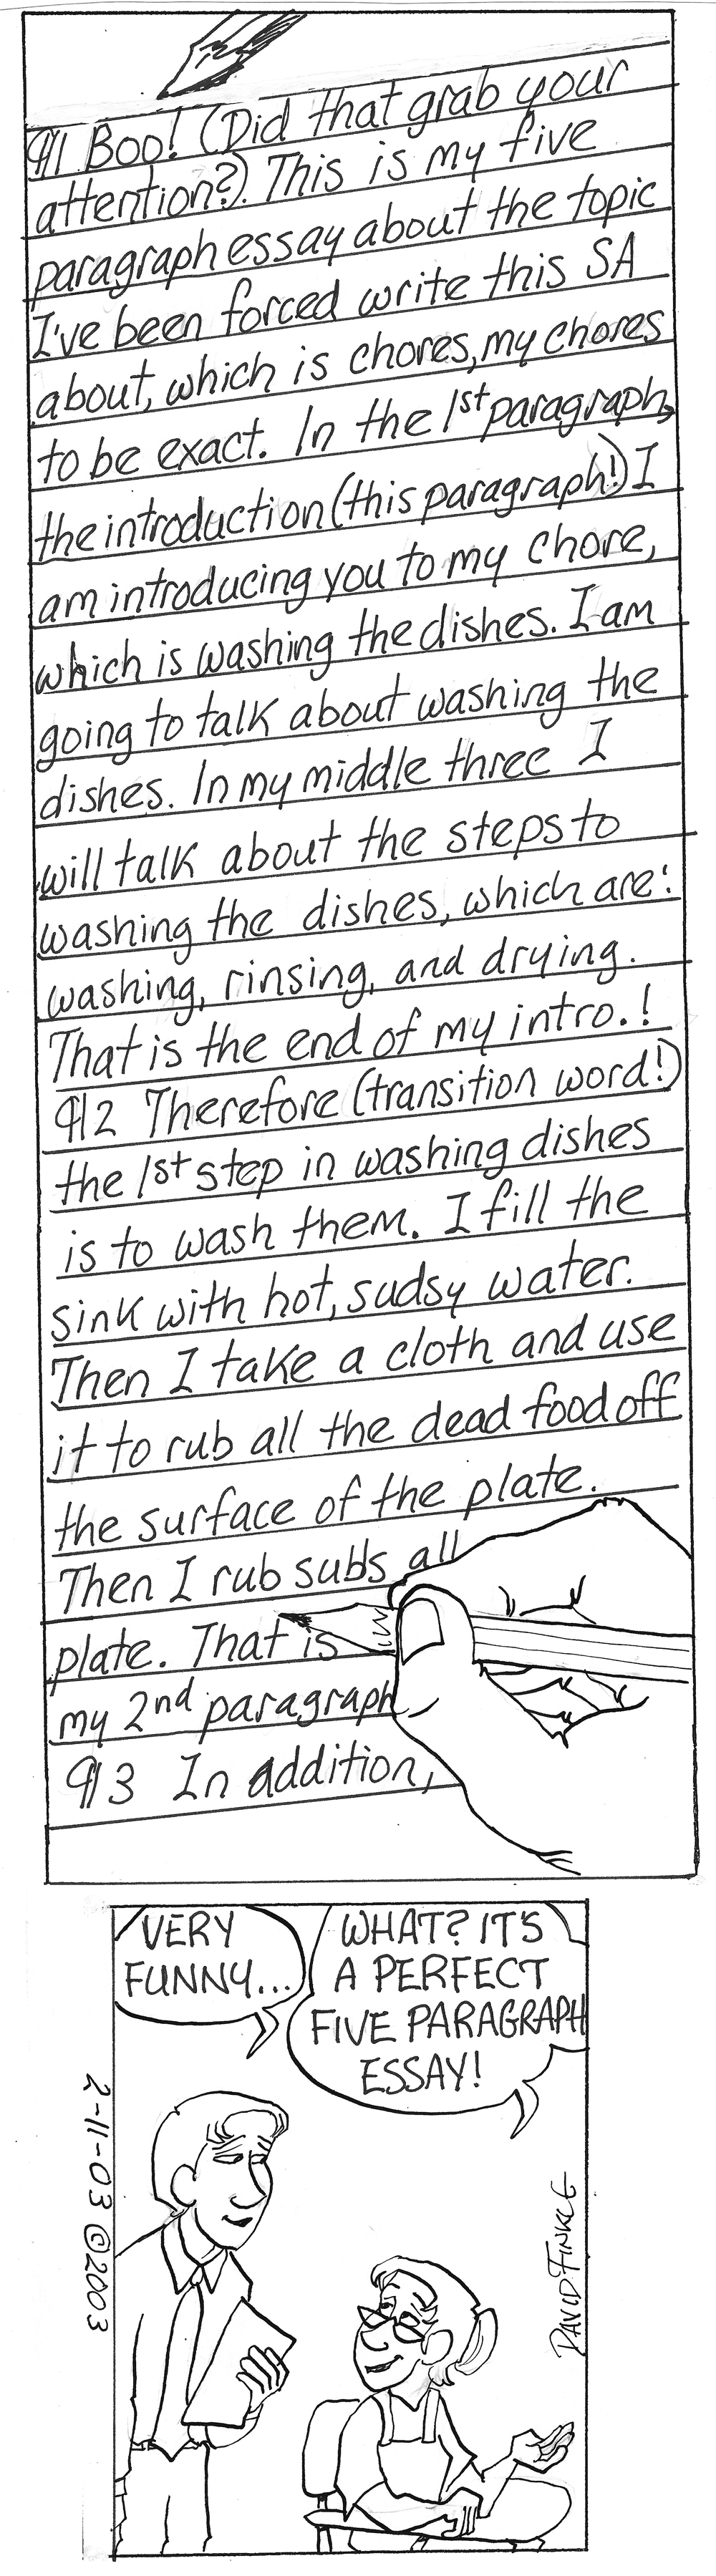 ¶1 Boo! (Did that grab your
attention?). This is my five
paragraph essay about the topic
I've been forced write this SA
about, which is chores, my chores
to be exact. In the 1st paragraph,
the introduction (this paragraph!) I
am introducing you to my chore,
which is washing the dishes. I am
going to talk about washing the
dishes. In my middle three I
will talk about the steps to
washing the dishes, which are:
washing, rinsing, and drying.
That is the end of my intro.!
¶2 Therefore (transition word!)
the 1st step in washing dishes
is to wash them. I fill the
sink with hot, sudsy water.
Then I take a cloth and use
it to rub all the dead food off
the surface of the plate.
Then I rub subs all
plate. That is
my 2nd paragraph
¶3 In addition,
VERY
FUNNY...
WHAT? IT'S
A PERFECT
FIVE PARAGRAPH
ESSAY!
2-11-03 ©2003
DAVID FINKLE